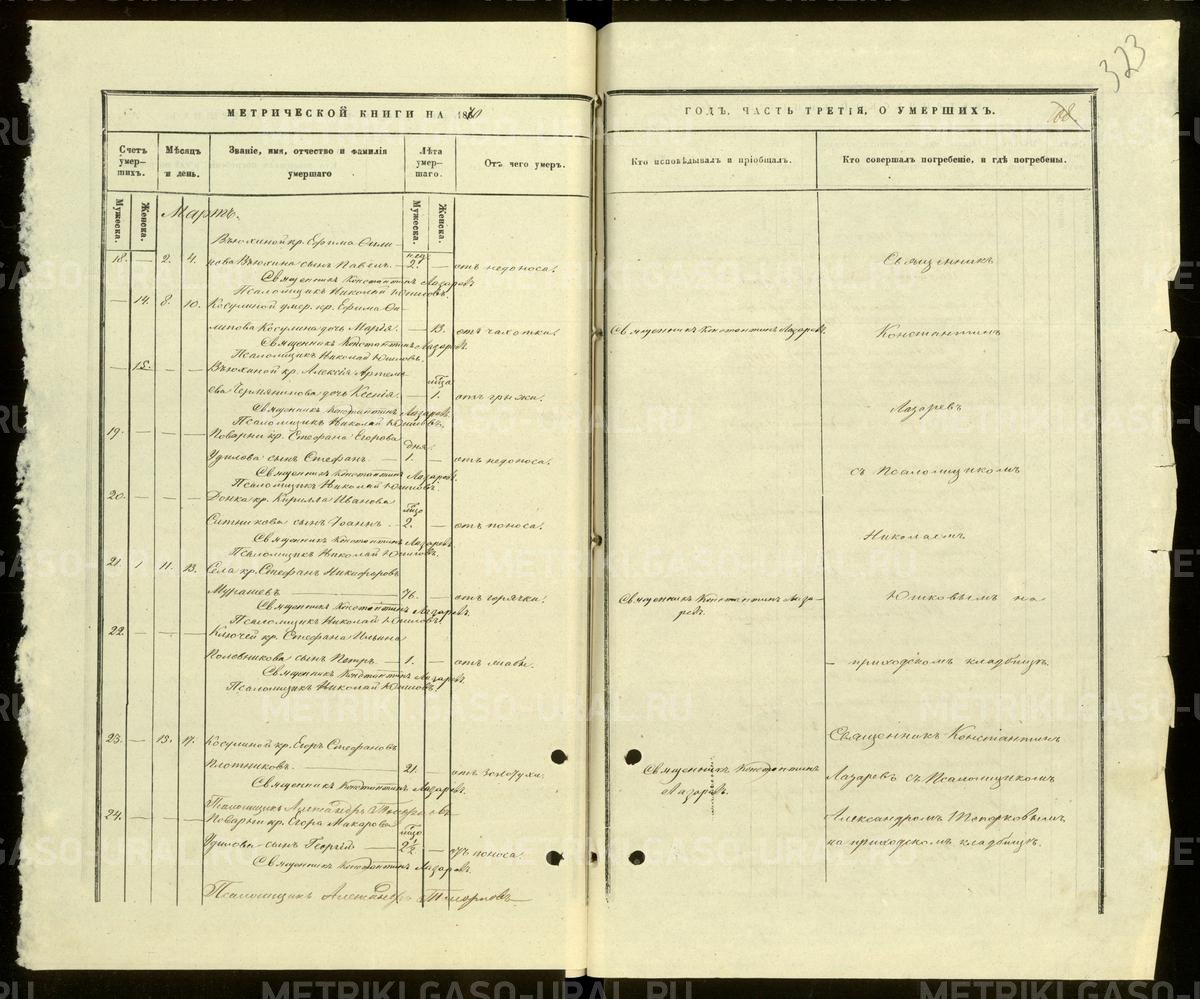 323
МЕТРИЧЕСКОЙ КНИГИ НА 1870
ГОДЪ, ЧАСТЬ ТРЕТІЯ, О УМЕРШИХЪ.
Счетъ умер-шихъ.
Мѣсяцъ и день.
Званіе, имя, отчество и фамилія умершаго
Лѣта умер-шаго.
Отъ чего умеръ.
Кто исповѣдывалъ и пріобщалъ.
Кто совершалъ погребеніе, и гдѣ погребены.
Мужеска.
Женска.
Мужеска.
Женска.
Мартъ.
Вьюхиной кр. Ефима Фили-
18. — 2. 4. пова Вьюхина сынъ Павелъ. — 2. нед. — отъ недоноса.
Священникъ Константинъ Лазаревъ.
Псаломщикъ Николай Юшковъ.
— 14. 8. 10. Косулиной умер. кр. Ефима Фи-
липова Косулина дочь Марія. — 13. отъ чахотки.
Священникъ Константинъ Лазаревъ.
Псаломщикъ Николай Юшковъ.
— 15. — — Вьюхиной кр. Алексія Артемь-
ева дочь Ксенія. — 1. мѣсца отъ грыжи.
Священникъ Константинъ Лазаревъ.
Псаломщикъ Николай Юшковъ.
19. — — — Поварни кр. Стефана Егорова
Удилова сынъ Стефанъ. — 1. дня. — отъ недоноса.
Священникъ Константинъ Лазаревъ.
Псаломщикъ Николай Юшковъ.
20. — — — кр. Кирилла Иванова
Ситникова сынъ Іоаннъ. — 2. мѣсцо — отъ поноса.
Священникъ Константинъ Лазаревъ.
Псаломщикъ Николай Юшковъ.
21. 1 11. 13. Села кр. Стефанъ Никифоровъ
Мурашевъ — 76. — отъ горячки.
Священникъ Константинъ Лазаревъ.
Псаломщикъ Николай Юшковъ.
22. — — — Ключей кр. Стефана Ильина
Полевникова сынъ Петръ. — 1. — отъ слабы.
Священникъ Константинъ Лазаревъ.
Псаломщикъ Николай Юшковъ.
23. — 15. 17. Косулиной кр. Егоръ Стефановъ
Плотниковъ. — 21. — отъ золотухи.
Священникъ Константинъ Лазаревъ.
Псаломщикъ Александръ Топорковъ
24. — — — Поварни кр. Егора Макарова
Удилова сынъ Георгій — 2½ мѣсцо — отъ поноса.
Священникъ Константинъ Лазаревъ.
Псаломщикъ Александръ Топорковъ
Священникъ Константинъ Лазаревъ.
Священникъ Константинъ Лаза-
ревъ.
Священникъ Константинъ
Лазаревъ.
Священникъ
Константинъ
Лазаревъ
съ Псаломщикомъ
Николаемъ
Юшковымъ на
приходскомъ кладбищѣ.
Священникъ Константинъ
Лазаревъ съ Псаломщикомъ
Александромъ Топорковымъ
на приходскомъ кладбищѣ.
METRIKI.GASO-URAL.RU